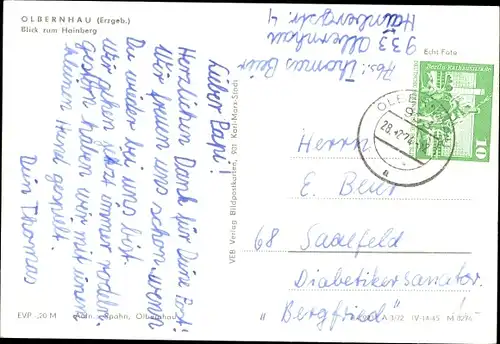 OLBERNHAU (Erzgeb.)
Blick zum Hainberg
Lieber Papi!
Herzlichen Dank für Deine Post!
Wir freuen uns schon wenn
Du wieder bei uns bist.
Wir gehen jetzt immer rodeln.
Gestern haben wir mit einem
kleinen Hund gespielt.
Dein Thomas
Abs.: Thomas Beier
933 Olbernhau
Hainbergstr. 4
Echt Foto
VEB Verlag Bildpostkarten, 901 Karl-Marx-Stadt
10
28.-2.74
a
Herrn
E. Beier
68 Saalfeld
Diabetikersanator.
"Bergfried"
EVP -,20 M
Spahn, Olbernhau
A 1/72 IV-14-45